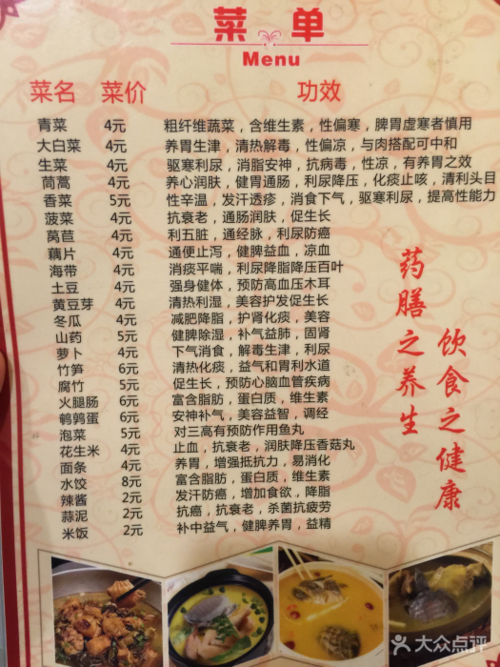 菜单
Menu
菜名 菜价 功效
青菜 4元 粗纤维蔬菜，含维生素，性偏寒，脾胃虚寒者慎用
大白菜 4元 养胃生津，清热解毒，性偏凉，与肉搭配可中和
生菜 4元 驱寒利尿，消脂安神，抗病毒，性凉，有养胃之效
茼蒿 4元 养心润肤，健胃通肠，利尿降压，化痰止咳，清利头目
香菜 5元 性辛温，发汗透疹，消食下气，驱寒利尿，提高性能力
菠菜 4元 抗衰老，通肠润肤，促生长
莴苣 4元 利五脏，通经脉，利尿防癌
藕片 4元 通便止泻，健脾益血，凉血
海带 4元 消痰平喘，利尿降脂降压百叶
土豆 4元 强身健体，预防高血压木耳
黄豆芽 4元 清热利湿，美容护发促生长
冬瓜 4元 减肥降脂，护肾化痰，美容
山药 5元 健脾除湿，补气益肺，固肾
萝卜 4元 下气消食，解毒生津，利尿
竹笋 6元 清热化痰，益气和胃利水道
腐竹 5元 促生长，预防心脑血管疾病
火腿肠 6元 富含脂肪，蛋白质，维生素
鹌鹑蛋 6元 安神补气，美容益智，调经
泡菜 5元 对三高有预防作用鱼丸
花生米 4元 止血，抗衰老，润肤降压香菇丸
面条 4元 养胃，增强抵抗力，易消化
水饺 8元 富含脂肪，蛋白质，维生素
辣酱 2元 发汗防癌，增加食欲，降脂
蒜泥 2元 抗癌，抗衰老，杀菌抗疲劳
米饭 2元 补中益气，健脾养胃，益精
药膳之养生
饮食之健康
大众点评